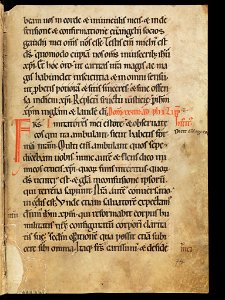 beam uos in corde et in uinculis meis. et in de
fensione et confirmatione euangelii socios
gaudii mei om̄s uos esse. Testis enim michi est
d̄s quomodo cupiam uos om̄s in uisceribus ih̄u
xp̄i. Et hoc oro ut caritas ur̄a magis ac ma
gis habundet in scientia et in omni sensu.
ut p̱betis potiora. ut sitis sinceres et sine offen
sa in diem xp̄i. Repleti fructu iusticie p̱ ih̄m
xp̄m in gl̄am et laudē dī.
Fr̄s Imitatores mei estote. et obseruate
eos qui ita ambulant. sicut habetis for
mam nr̄am. Multi enī ambulant quos sepe
dicebam uobis. nunc autē et flens dico ini
micos crucis xp̄i. quoꝝ finis interitus. quoꝝ
d̄s uenter est. et gl̄a in confusione ipsoꝝ
qui terrena sapiunt. Nr̄a autē conuersatio
in celis est. Unde etiam saluatorē expecta
mus dn̄m ih̄m xp̄m. qui reformabit corpus hu
militatis nr̄e configuratū corpori clarita
tis sue. secd̄m op̱ationē qua possit etiā subi
cere sibi omnia. Itaq; fr̄s carissimi et deside